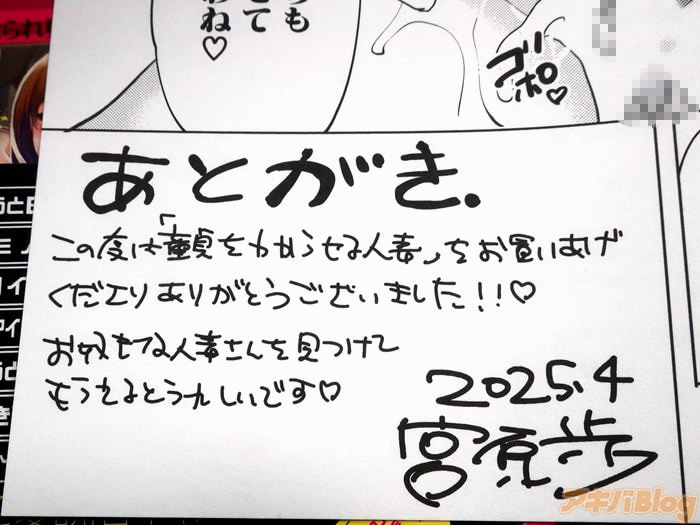 も
て
わね♡
ゴポ♡
あとがき.
この度は「童貞をわからせる人妻」をお買いあげ
くださりありがとうございました!!♡
お好きな人妻さんを見つけて
もらえるとうれしいです♡
2025.4
宮原歩
アキバBlog